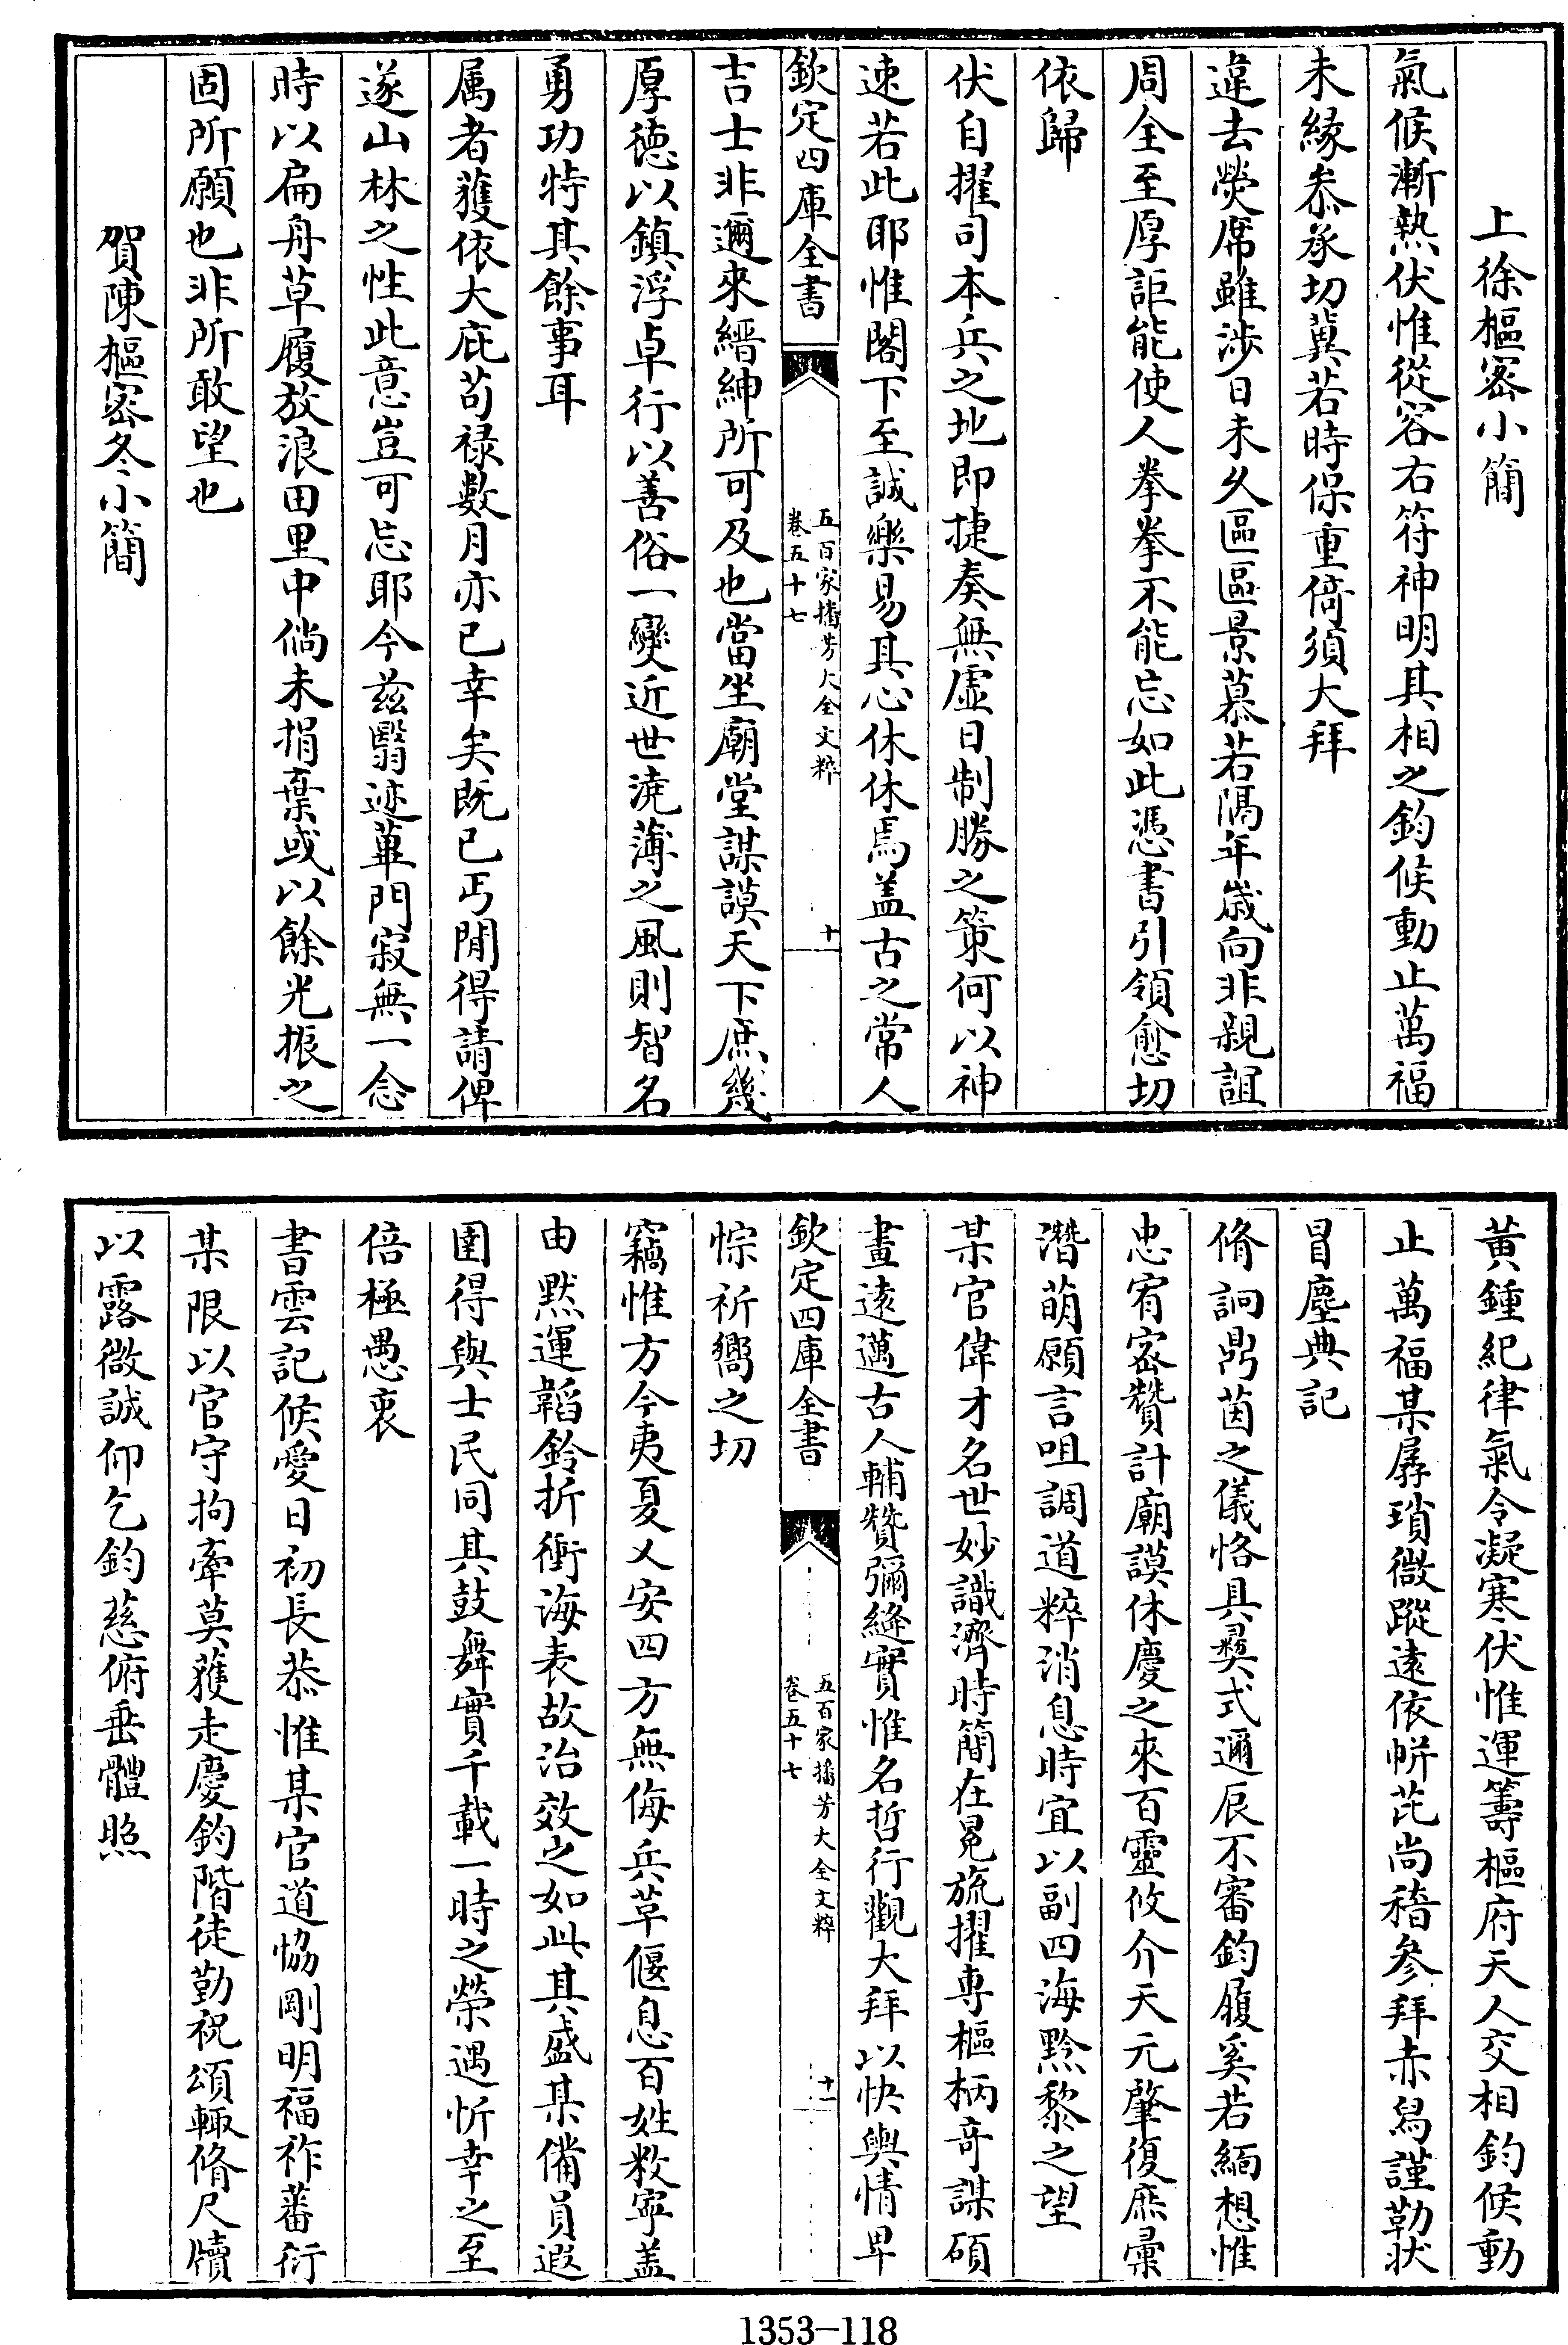 上徐樞密小簡
氣候漸熱伏惟從容右符神明其相之鈞候動止萬福
未縁叅承切冀若時保重倚須大拜
違去熒席雖渉日未久區區景慕若隔年歳向非親誼
周全至厚詎能使人拳拳不能忘如此憑書引領愈切
依歸
伏自擢司本兵之地即捷奏無虚日制勝之策何以神
速若此耶惟閣下至誠樂易其心休休焉盖古之常人
欽定四庫全書
五百家播芳大全文粹
卷五十七
十
吉士非邇來縉紳所可及也當坐廟堂謀謨天下庶幾
厚徳以鎮浮卓行以善俗一變近世澆薄之風則智名
勇功特其餘事耳
属者獲依大庇苟禄數月亦已幸矣既已丐閒得請俾
遂山林之性此意豈可忘耶今兹翳迹蓽門寂無一念
時以扁舟草履放浪田里中倘未捐棄或以餘光振之
固所願也非所敢望也
賀陳樞密冬小簡
黄鍾紀律氣令凝寒伏惟運籌樞府天人交相鈞候動
止萬福某孱瑣微蹤遠依帡芘尚稽參拜赤舄謹勒状
冒塵典記
脩詞鼎茵之儀恪具彛式邇辰不審鈞履奚若緬想惟
忠宥密贊計廟謨休慶之來百靈攸介天元肇復庶彚
潛萌願言咀調道粹消息時宜以副四海黔黎之望
某官偉才名世妙識濟時簡在冕旒擢専樞柄竒謀碩
畫遠邁古人輔贊彌縫實惟名哲行觀大拜以快輿情卑
欽定四庫全書
五百家播芳大全文粹
卷五十七
十一
悰祈嚮之切
竊惟方今夷夏乂安四方無侮兵革偃息百姓敉寜盖
由黙運韜鈴折衝海表故治效之如此其盛某備員遐
圉得與士民同其鼓舞實千載一時之榮遇忻幸之至
倍極愚衷
書雲記候愛日初長恭惟某官道恊剛明福祚蕃衍
某限以官守拘牽莫獲走慶鈞階徒勤祝頌輙脩尺牘
以露微誠仰乞鈞慈俯垂體照
1353-118